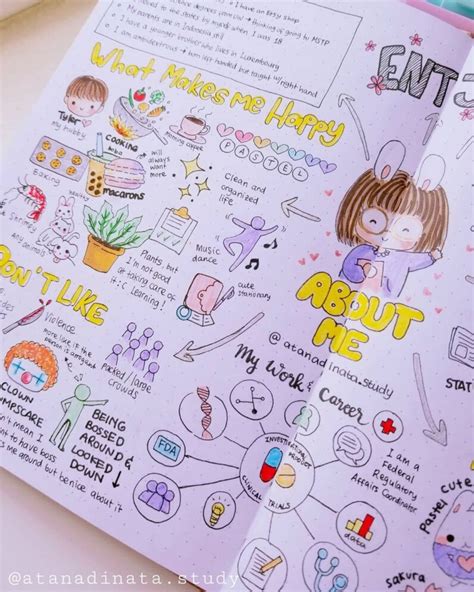 I have an Etsy shop
thinking of going to MSTP
by myself when I was 18
• My parents are in Indonesia still
• I have a younger brother who lives in Luxembourg
• I am ambidextrous → born left handed but taught right hand
What Makes me Happy
ENT
Tyler
my hubby
COOKING
will
always
want
more
morning coffee
PASTEL
Baking
boba
macarons
Clean and
organized
life
any animals
Plants, but
I'm not good
at taking care of
it :C learning!
Music
dance
cute
stationary
ABOUT
ME
@atanadinata.study
DON'T LIKE
Violence
more like if the
person is arrogant
packed/large
crowds
CLOWN
JUMPSCARE
BEING
BOSSED
AROUND &
LOOKED
DOWN
but be nice about it
My Work &
Career
FDA
INVESTIGATIONAL
PRODUCT
CLINICAL
TRIALS
data
I am a
Federal
Regulatory
Affairs Coordinator
STAT
cute
Pastel
Sakura
@atanadinata.study